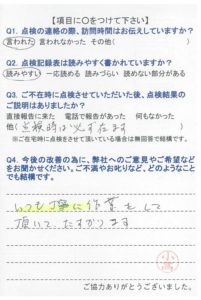 【項目に○をつけて下さい】
Q1. 点検の連絡の際、訪問時間はお伝えしていますか？
言われた 言われなかった その他( )
Q2. 点検記録表は読みやすく書かれていますか？
読みやすい 一応読める 読みづらい 読めない部分がある
Q3. ご不在時に点検させていただいた後、点検結果の
ご説明はありましたか？
直接報告に来た 電話で報告があった 何もなかった
他( 点検時は必ず在ます )
※ご在宅時に点検をさせて頂いている場合は無回答で結構です。
Q4. 今後の改善の為に、弊社へのご意見やご希望など
をお聞かせください。ご不満やお叱りなど、どのようなこと
でも結構です。
いつも丁寧に作業をして
頂いて、たすかってます
ご協力ありがとうございました。